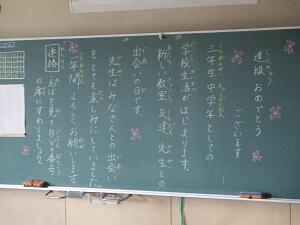 進級 おめでとう
ございます!
二年生 中学年としての
学校生活がはじまります。
新しい教室、友達、先生との
出会いの日です。
先生はみなさんとの出会い
をとても楽しみにしていました。
一年間よろしくお願いします。
連絡
名ぼを見て自分の番号
の席にすわりましょう。